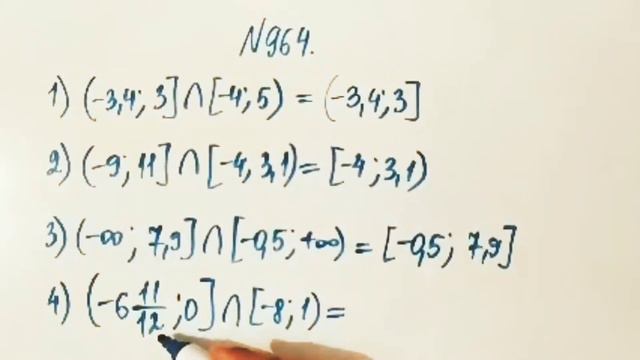 N964.
1) (-3,4; 3] ∩ [-4; 5) = (-3,4; 3]
2) (-9; 11] ∩ [-4, 3,1) = [-4; 3,1)
3) (-∞; 7,9] ∩ [-0,5; +∞) = [-0,5; 7,9]
4) (-6 11/12; 0] ∩ [-8; 1) =